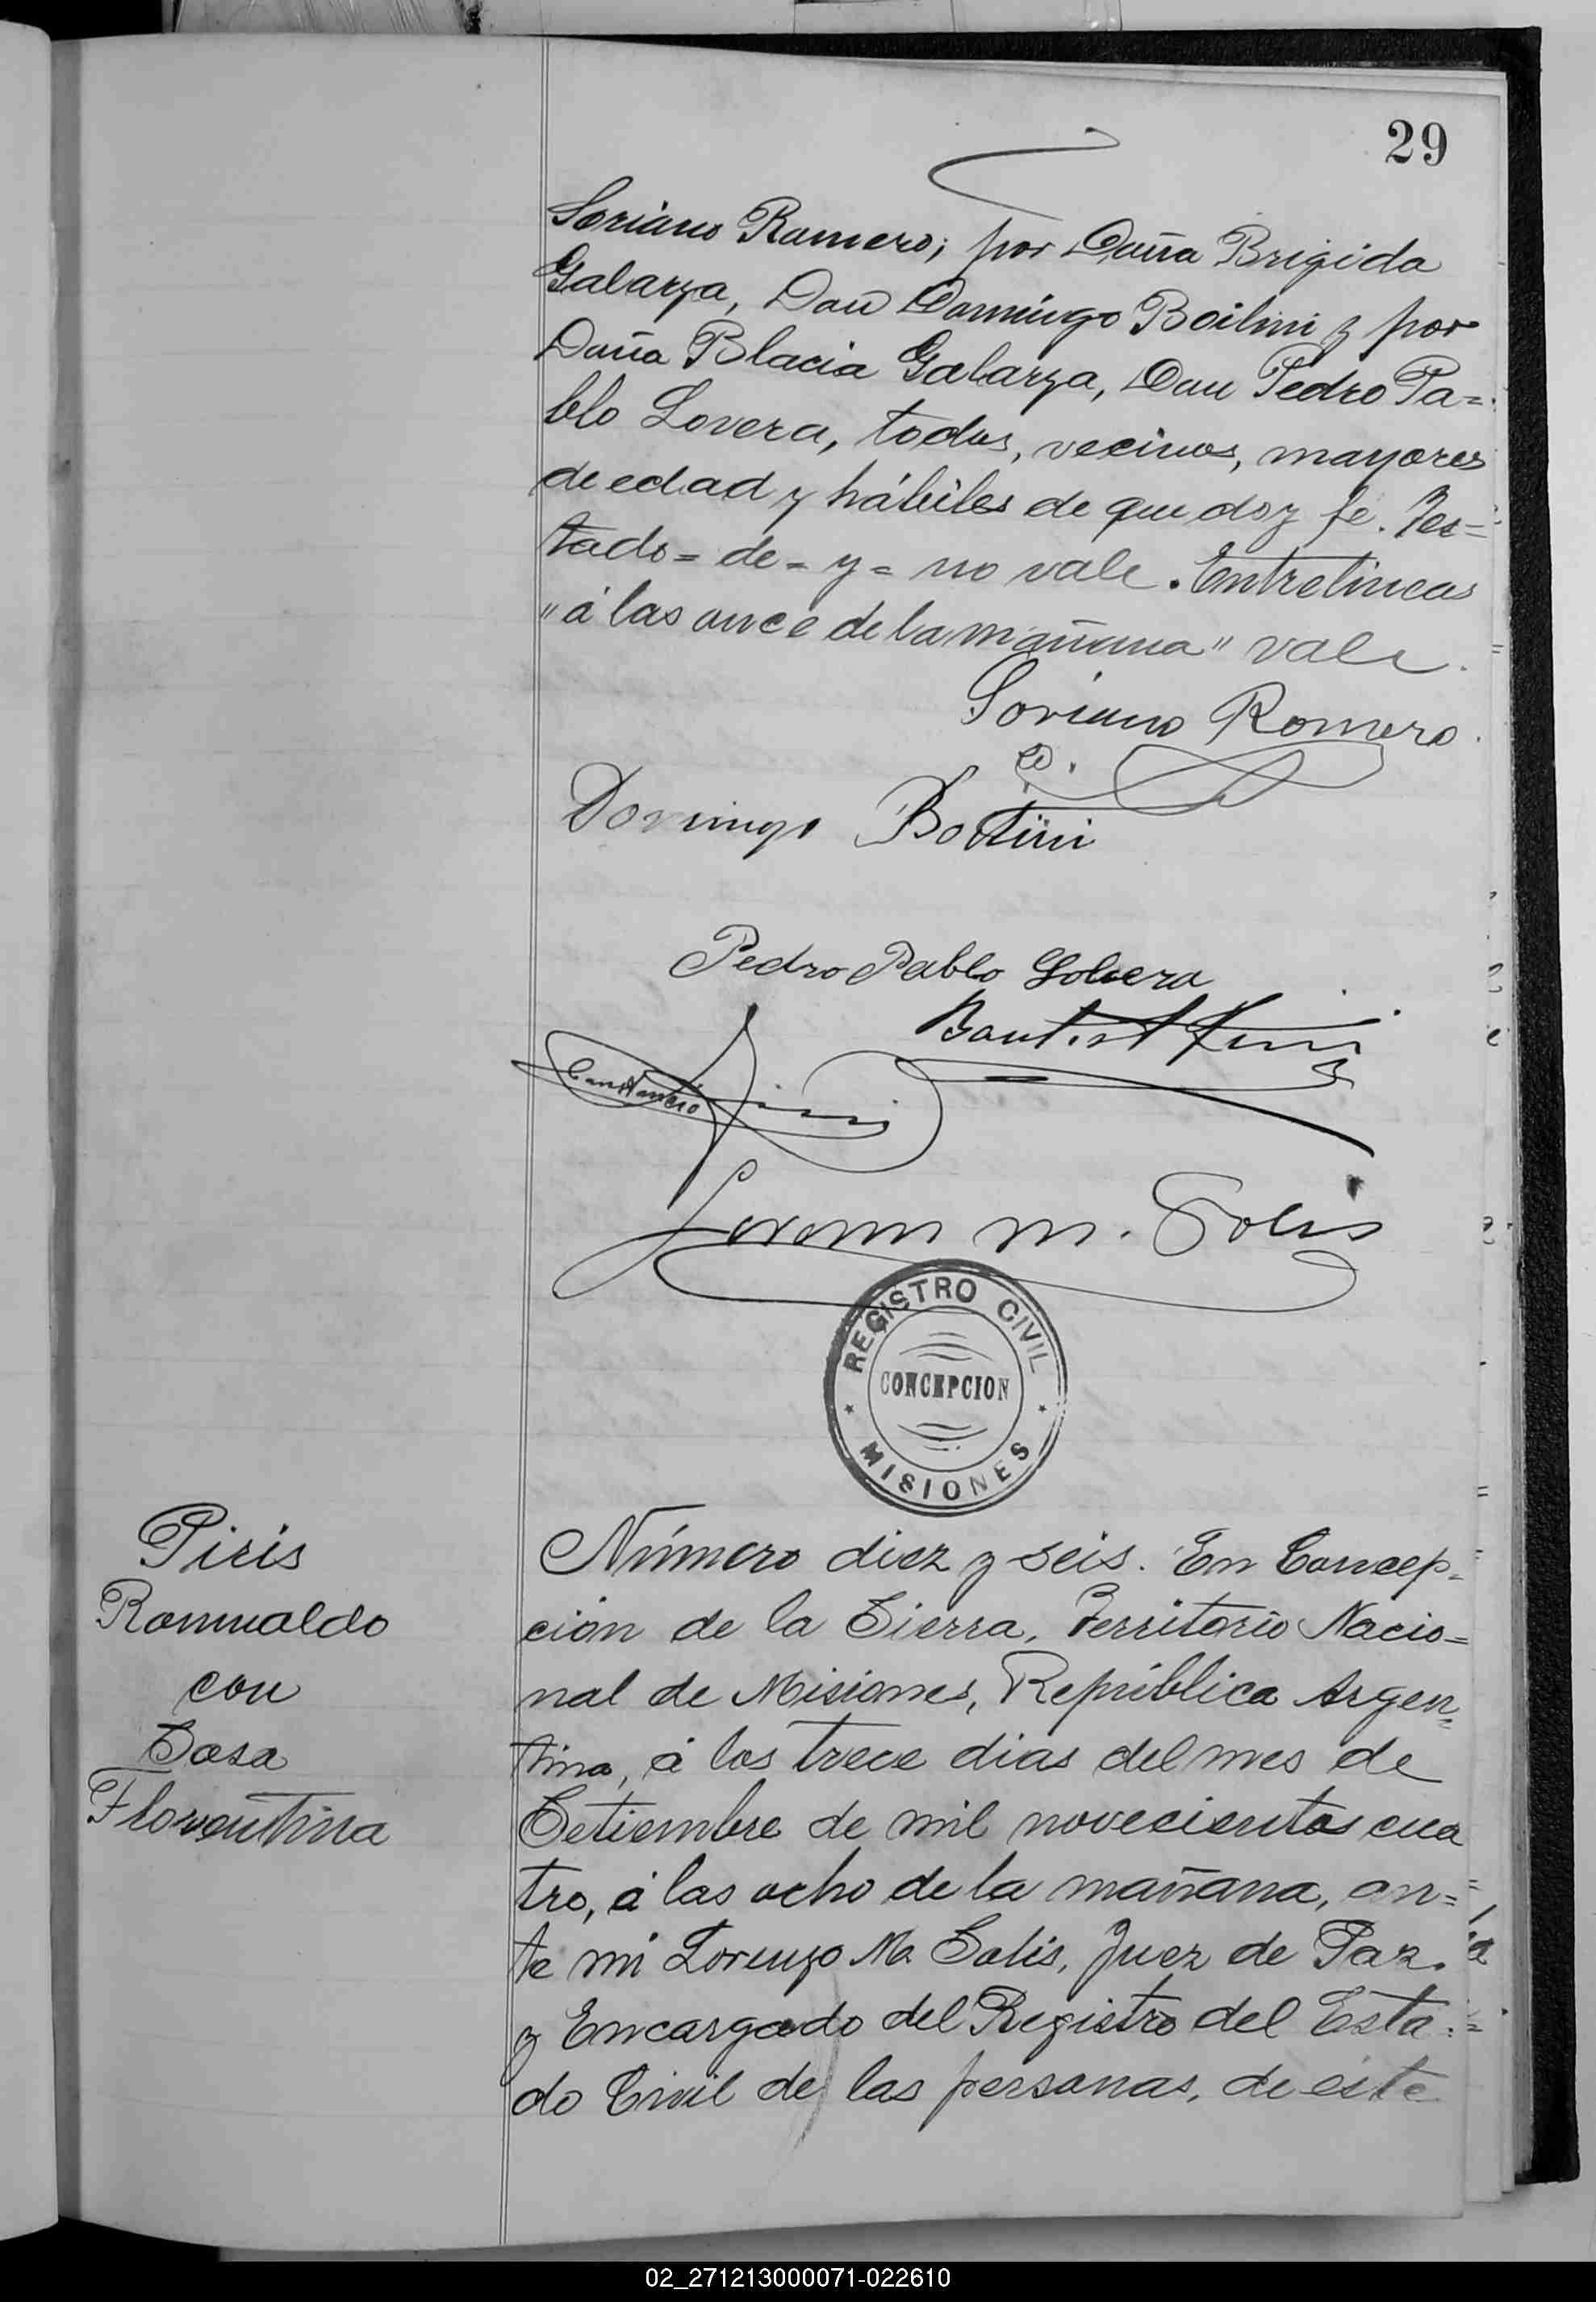 29
Soriano Romero; por Doña Brigida
Galarza, Don Domingo Boilini y por
Doña Blacia Galarza, Don Pedro Pa=
blo Lovera, todos, vecinos, mayores
de edad y hábiles de que doy fe. Tes=
tado = de = y = no vale. Entrelineas
"á las once de la mañana" vale.
Soriano Romero.
Domingo
Pedro Pablo Lobera
Bautist
Constancio
Lorenzo M. Solis
REGISTRO CIVIL
CONCEPCION
MISIONES
Piris
Romualdo
con
Sosa
Florentina
Número diez y seis. En Concep=
ción de la Sierra, Territorio Nacio=
nal de Misiones, República Argen=
tina, á los trece dias del mes de
Setiembre de mil novecientos cua
tro, á las ocho de la mañana, an=
te mi Lorenzo M. Solis, Juez de Paz
y Encargado del Registro del Esta=
do Civil de las personas, de éste
02_271213000071-022610